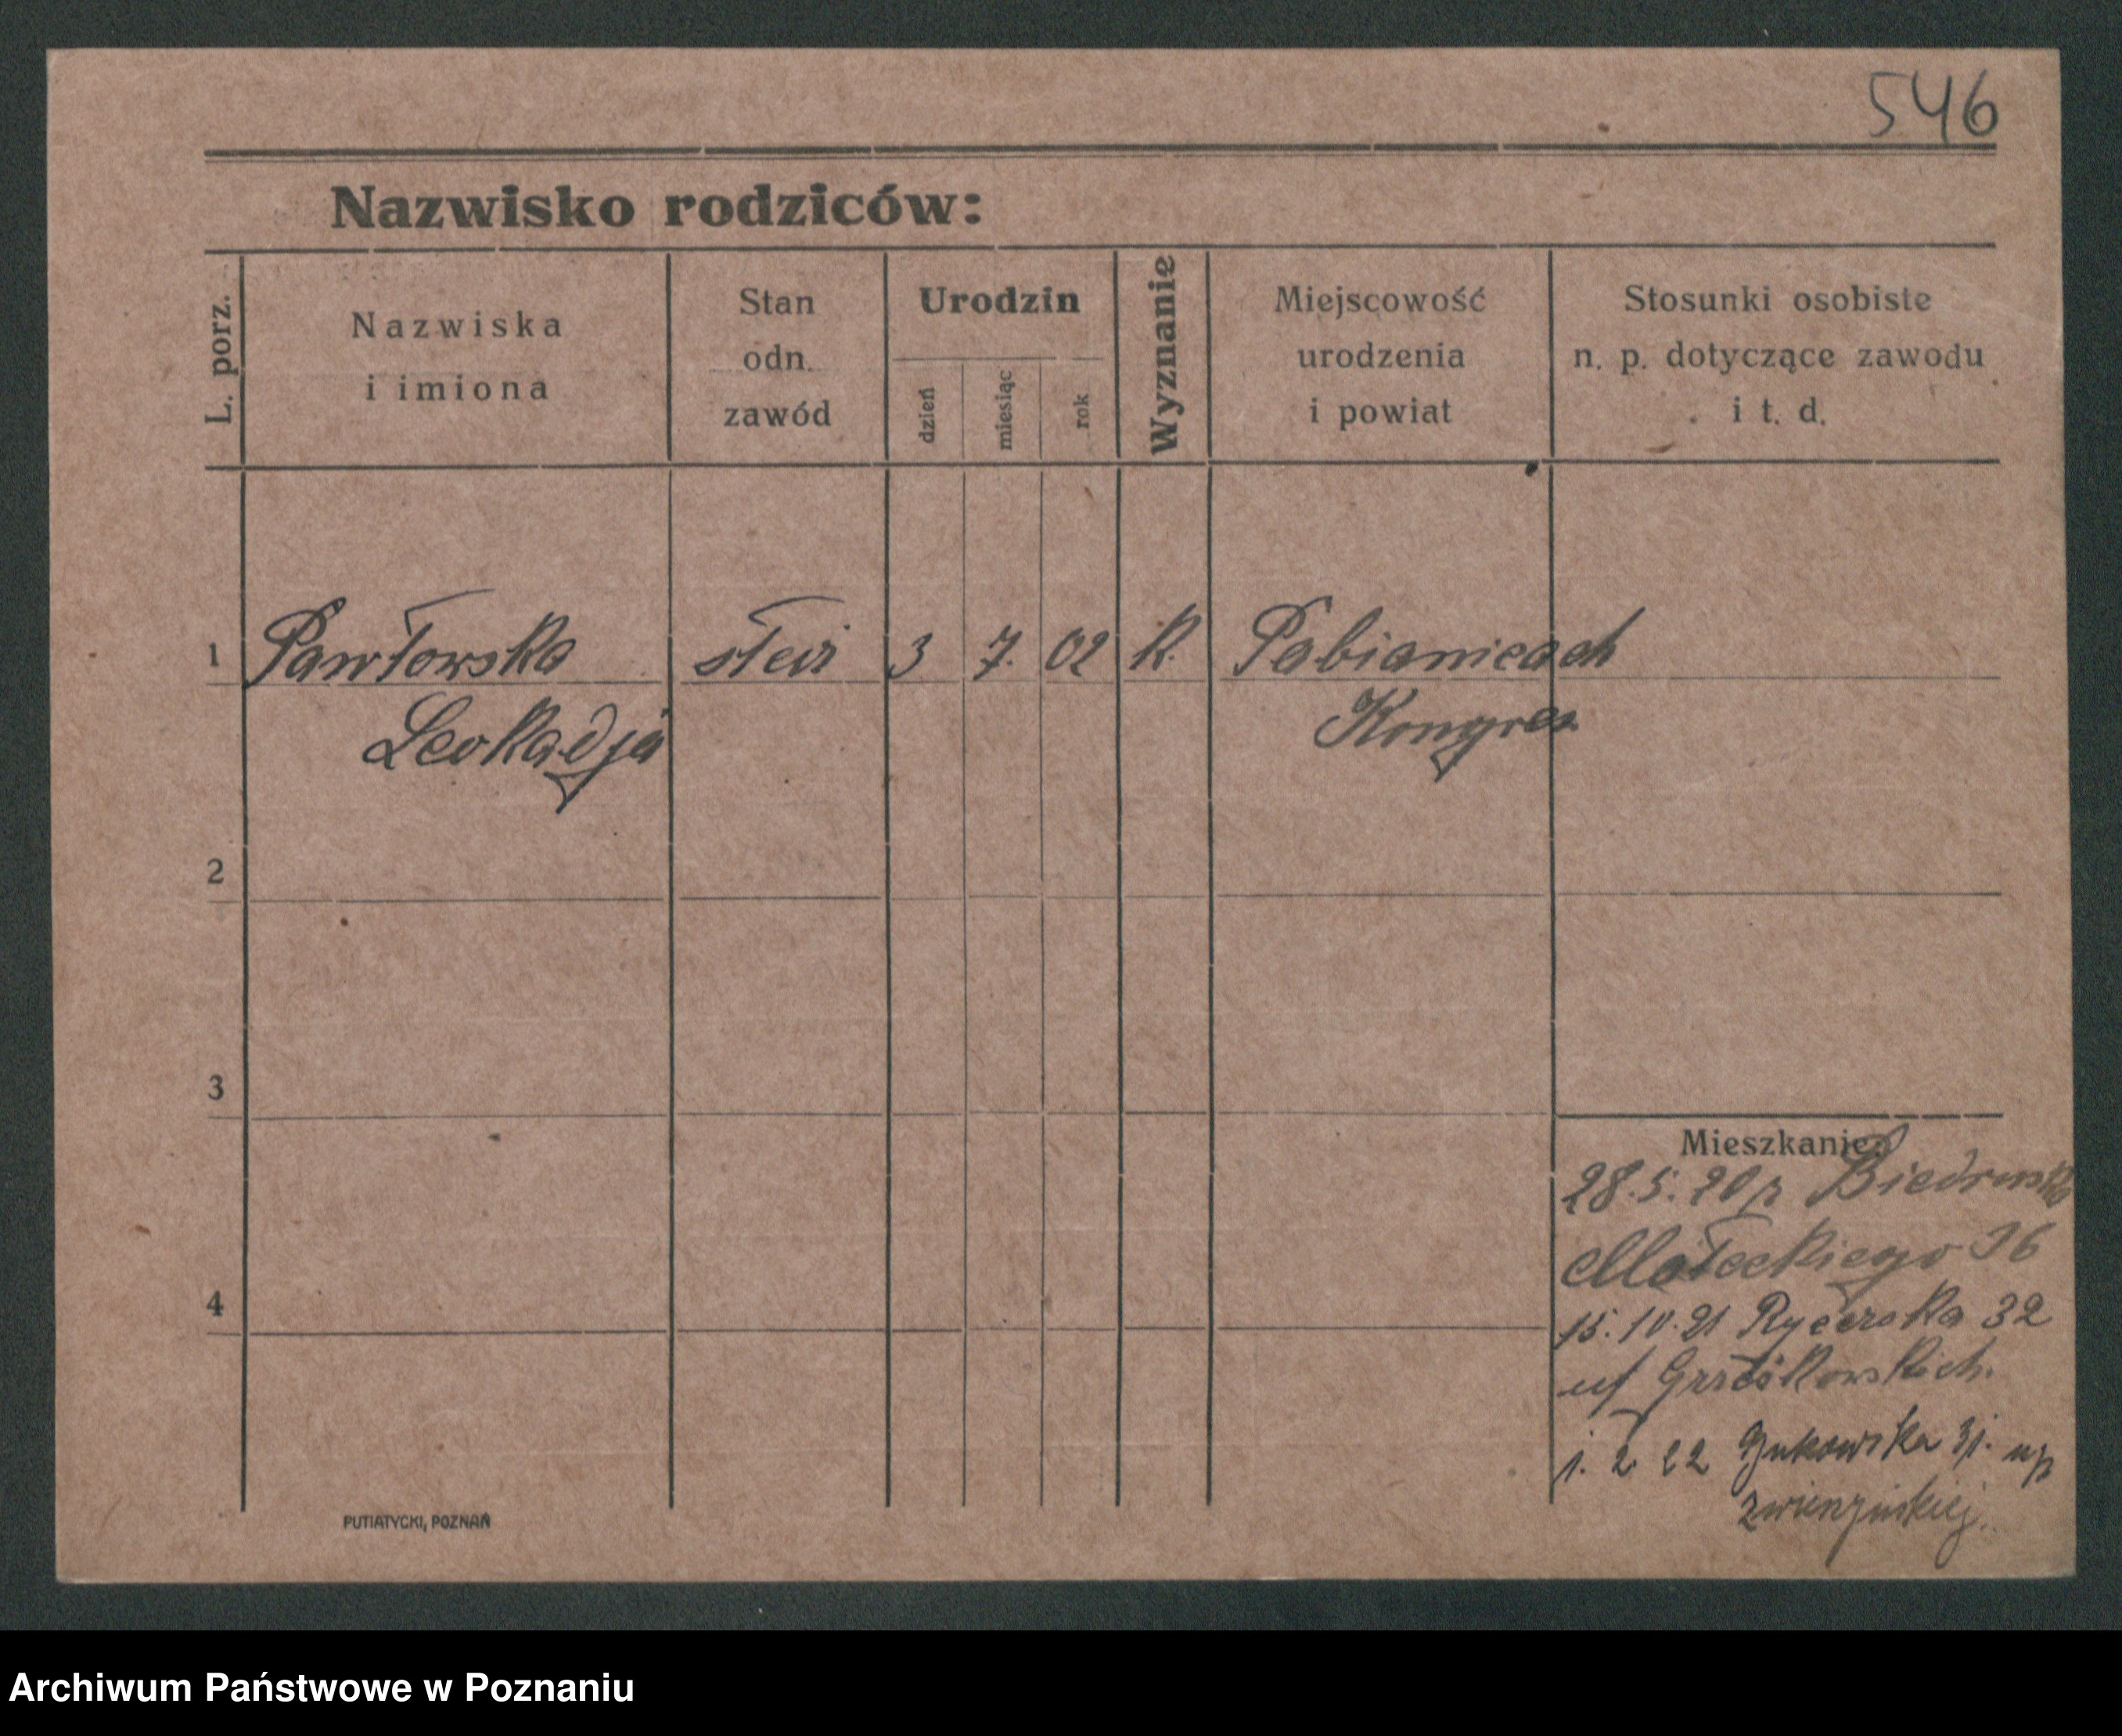 546
Nazwisko rodziców:
L. porz.
Nazwiska
i imiona
Stan
odn.
zawód
Urodzin
dzień
miesiąc
rok
Wyznanie
Miejscowość
urodzenia
i powiat
Stosunki osobiste
n. p. dotyczące zawodu
i t. d.
1 Pawłowska 3 7. 02 k. Pabianicach
Leokadja Kongres
2
3
4
Mieszkanie:
28.5.20 Biedrusko
Małeckiego 36
15.10.21 Rycerska 32
1. 2 22
PUTIATYCKI, POZNAŃ
Archiwum Państwowe w Poznaniu